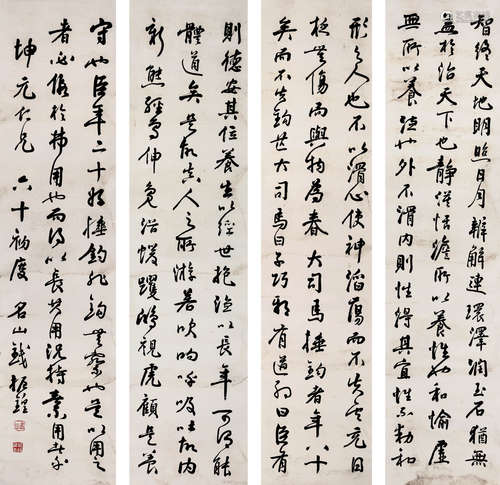 智終天地明照日月辯解連環澤潤玉石猶無
益於治天下也靜漠恬澹所以養性也和愉虛
無所以養德也外不滑內則性得其宜性不動和
形之人也不以滑心使神滔蕩而不失其充日
夜無傷而與物為春 大司馬捶鉤者年八十
矣而不失鉤芒大司馬曰子巧邪有道邪曰臣有
則德安其位養生以經世抱德以長年可謂能
體道矣是故真人之所游若吹呴呼吸吐故內
新熊經鳥伸鳧浴蝯躩鴟視虎顧是養
守也臣年二十好捶鉤非鉤無察也是以用之
者必假於弗用也而得以長其用況持無用者乎
坤元仁兄 六十初度 名山錢振鍠